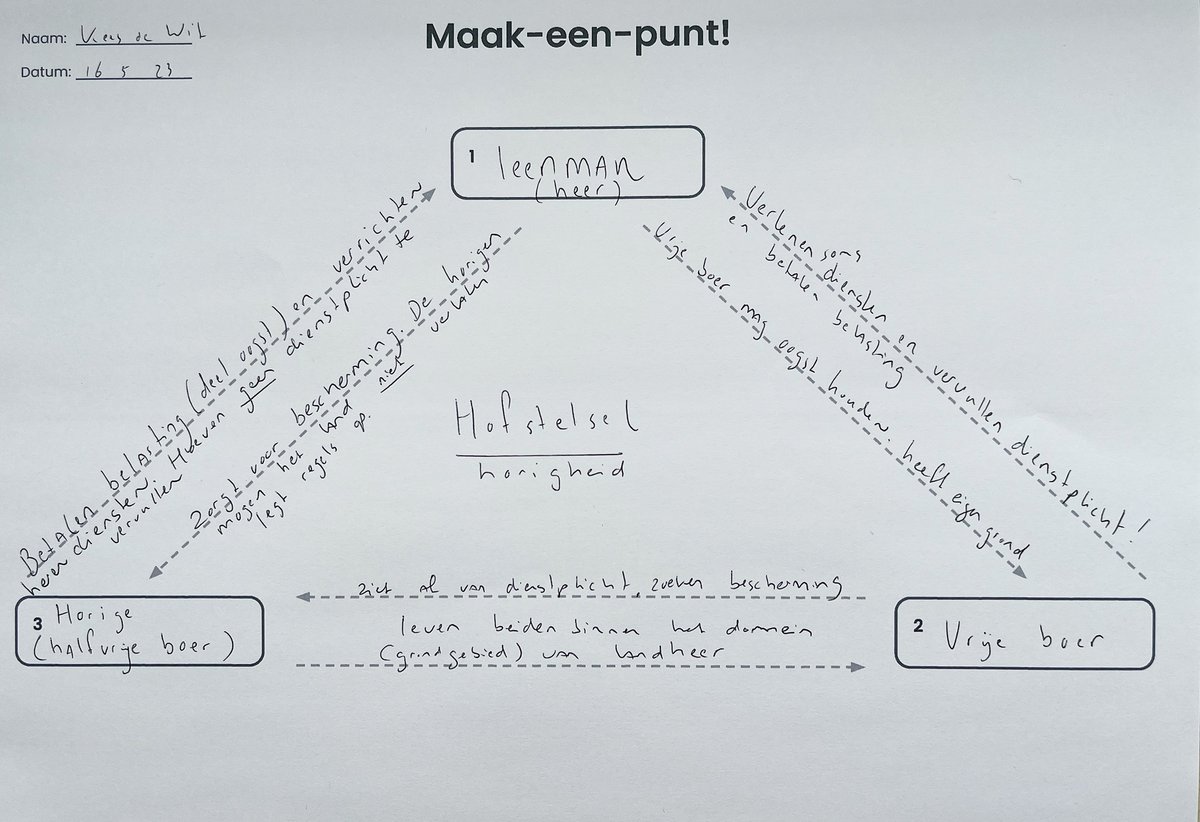 Naam: Kees de Wit
Datum: 16 5 23
Maak-een-punt!
1 leenMAN
(heer)
Betalen belasting (deel oogst) en verrichten
herendiensten. Hoeven geen dienstplicht te
vervullen
Zorgt voor bescherming. De horigen
mogen het land niet verlaten
legt regels op.
Vrije boer mag oogst houden. heeft eigen grond
Verlenen soms diensten en vervullen dienstplicht!
en betalen belasting
Hofstelsel
horigheid
ziet af van dienstplicht, zoeken bescherming
leven beiden binnen het domein
(grondgebied) van landheer
3 Horige
(halfvrije boer)
2 Vrije boer